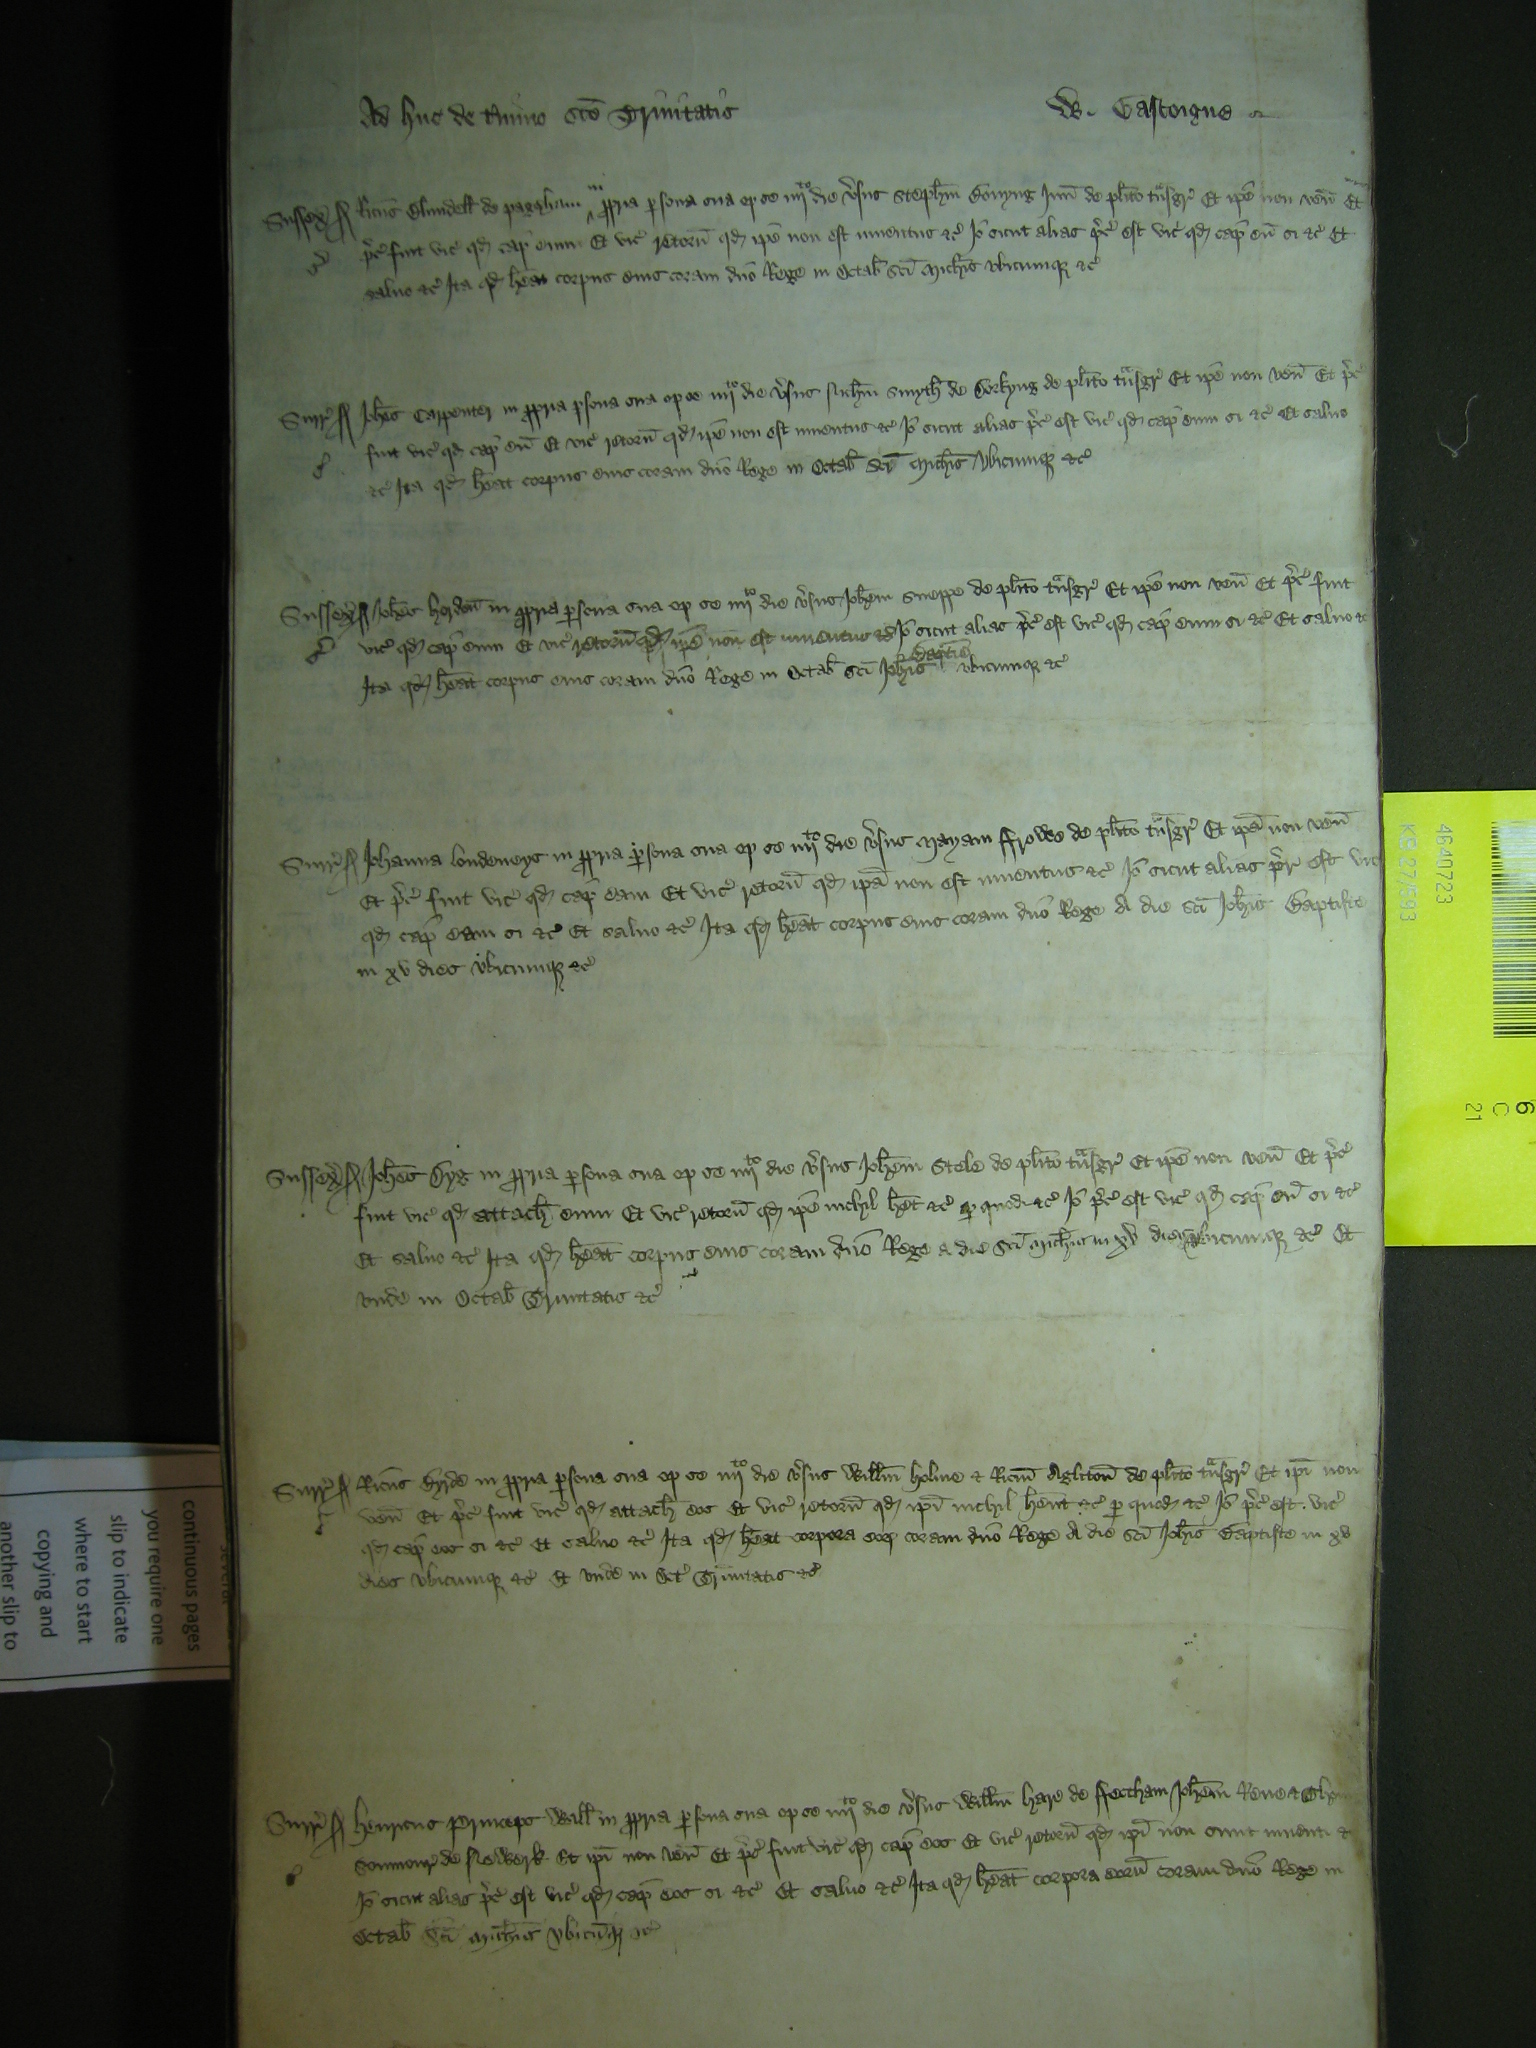 Ad huc de t'mino sc̄e Trinitatis W. Gascoigne
Sussex' ss Ric̄us Blundell de pagh'm in p̱pria p̱sona sua op se iiijto die v̄sus Steph̄m Gonyng Iun̄ de pl̄ito tn̄sgr' Et ip̄e non ven̄ Et
p̄c' fuit vic' qd̄ cap̄ eum Et vic' retorn̄ qd̄ ip̄e non est inuentus &c' Iō sicut alias p̄c' est vic' qd̄ cap̄ eū si &c' Et
saluo &c' Ita qd̄ hēat corpus eius coram dn̄o Rege in Octab̄ sc̄i Mich̄is vbicumq̨ &c'
Surr' ss Joh̄es Carpenter in p̱pria p̱sona sua op se iiijto die v̄sus Nich̄m Smyth de Dorkyng de pl̄ito tn̄sgr' Et ip̄e non ven̄ Et p̄c'
fuit vic' qd̄ cap̄ eū Et vic' retorn̄ qd̄ ip̄e non est inuentus &c' Iō sicut alias p̄c' est vic' qd̄ cap̄ eum si &c' Et saluo
&c' Ita qd̄ hēat corpus eius coram dn̄o Rege in Octab̄ sc̄i Mich̄is vbicumq̨ &c'
Sussex' ss Joh̄es in p̱pria p̱sona sua op se iiijto die v̄sus Joh̄em Sneppe de pl̄ito tn̄sgr' Et ip̄e non ven̄ Et p̄c' fuit
vic' qd̄ cap̄ eum Et vic' retorn̄ qd̄ ip̄e non est inuentus &c' Iō sicut alias p̄c' est vic' qd̄ cap̄ eum si &c' Et saluo &c'
Ita qd̄ hēat corpus eius coram dn̄o Rege in Octab̄ sc̄i Joh̄is Baptīe vbicumq̨ &c'
Surr' ss Johanna londeneys in p̱pria p̱sona sua op se iiijto die v̄sus Mayam ffrowe de pl̄ito tn̄sgr' Et ip̄a non ven̄
Et p̄c' fuit vic' qd̄ cap̄ eam Et vic' retorn̄ qd̄ ip̄a non est inuentus &c' Iō sicut alias p̄c' est vic'
qd̄ cap̄ eam si &c' Et saluo &c' Ita qd̄ hēat corpus eius coram dn̄o Rege A die sc̄i Joh̄is Baptiste
in xv dies vbicumq̨ &c'
Sussex' ss Joh̄es Gyg in p̱pria p̱sona sua op se iiijto die v̄sus Joh̄em Stele de pl̄ito tn̄sgr' Et ip̄e non ven̄ Et p̄c'
fuit vic' qd̄ attach̄ eum Et vic' retorn̄ qd̄ ip̄e nichil hēt &c' p̱ quod &c' Iō p̄c' est vic' qd̄ cap̄ eū si &c'
Et saluo &c' Ita qd̄ hēat corpus eius coram dn̄o Rege a die sc̄i Mich̄is in xv dies vbicumq̨ &c' Et
vnde in Octab̄ Trinitatis &c'
Surr' ss Ric̄us Hyrde in p̱pria p̱sona sua op se iiijto die v̄sus Will̄m Holme & Ric̄m Agliton̄ de pl̄ito tn̄sgr' Et ip̄i non
ven̄ Et p̄c' fuit vic' qd̄ attach̄ eos Et vic' retorn̄ qd̄ ip̄i nichil hēnt &c' p̱ quod &c' Iō p̄c' est vic'
qd̄ cap̄ eos si &c' Et saluo &c' Ita qd̄ hēat corpora eoꝝ coram dn̄o Rege A die sc̄i Joh̄is Baptiste in xv
dies vbicumq̨ &c' Et vnde in Oct' Trinitatis &c'
Surr' ss Henricus Princeps Will̄ in p̱pria p̱sona sua op se iiijto die v̄sus Will̄m hare de ffecham Joh̄em Reue &
Somnour de Newerk Et ip̄i non ven̄ Et p̄c' fuit vic' qd̄ cap̄ eos Et vic' retorn̄ qd̄ ip̄i non sunt inuenti &
Iō sicut alias p̄c' est vic' qd̄ cap̄ eos si &c' Et saluo &c' Ita qd̄ hēat corpora eorū coram dn̄o Rege in
Octab̄ Sc̄i Mich̄is vbicumq̨ &c'
4640723
KB 27/593
6
C
21
several
continuous pages
you require one
slip to indicate
where to start
copying and
another slip to